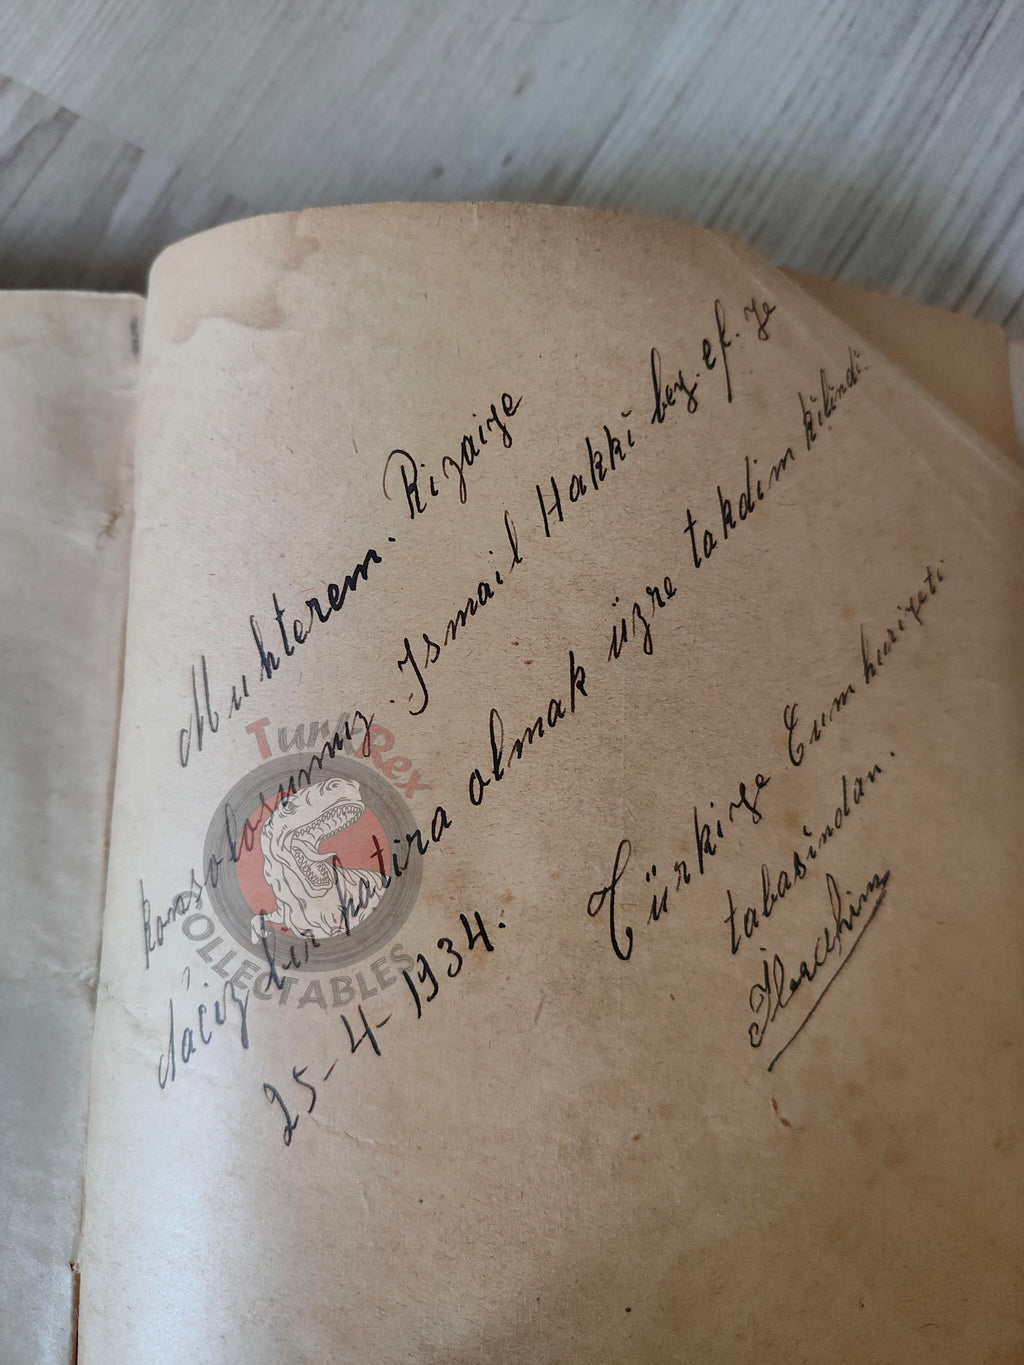 Muhterem. Rizaiye
konsolosumuz. Ismail Hakki bey. ef. ye
Naciz bir hatira olmak üzre takdim kilindi.
25-4-1934.
Türkiye Cumhuriyeti
tabasindan.
Tuna Rex
COLLECTABLES